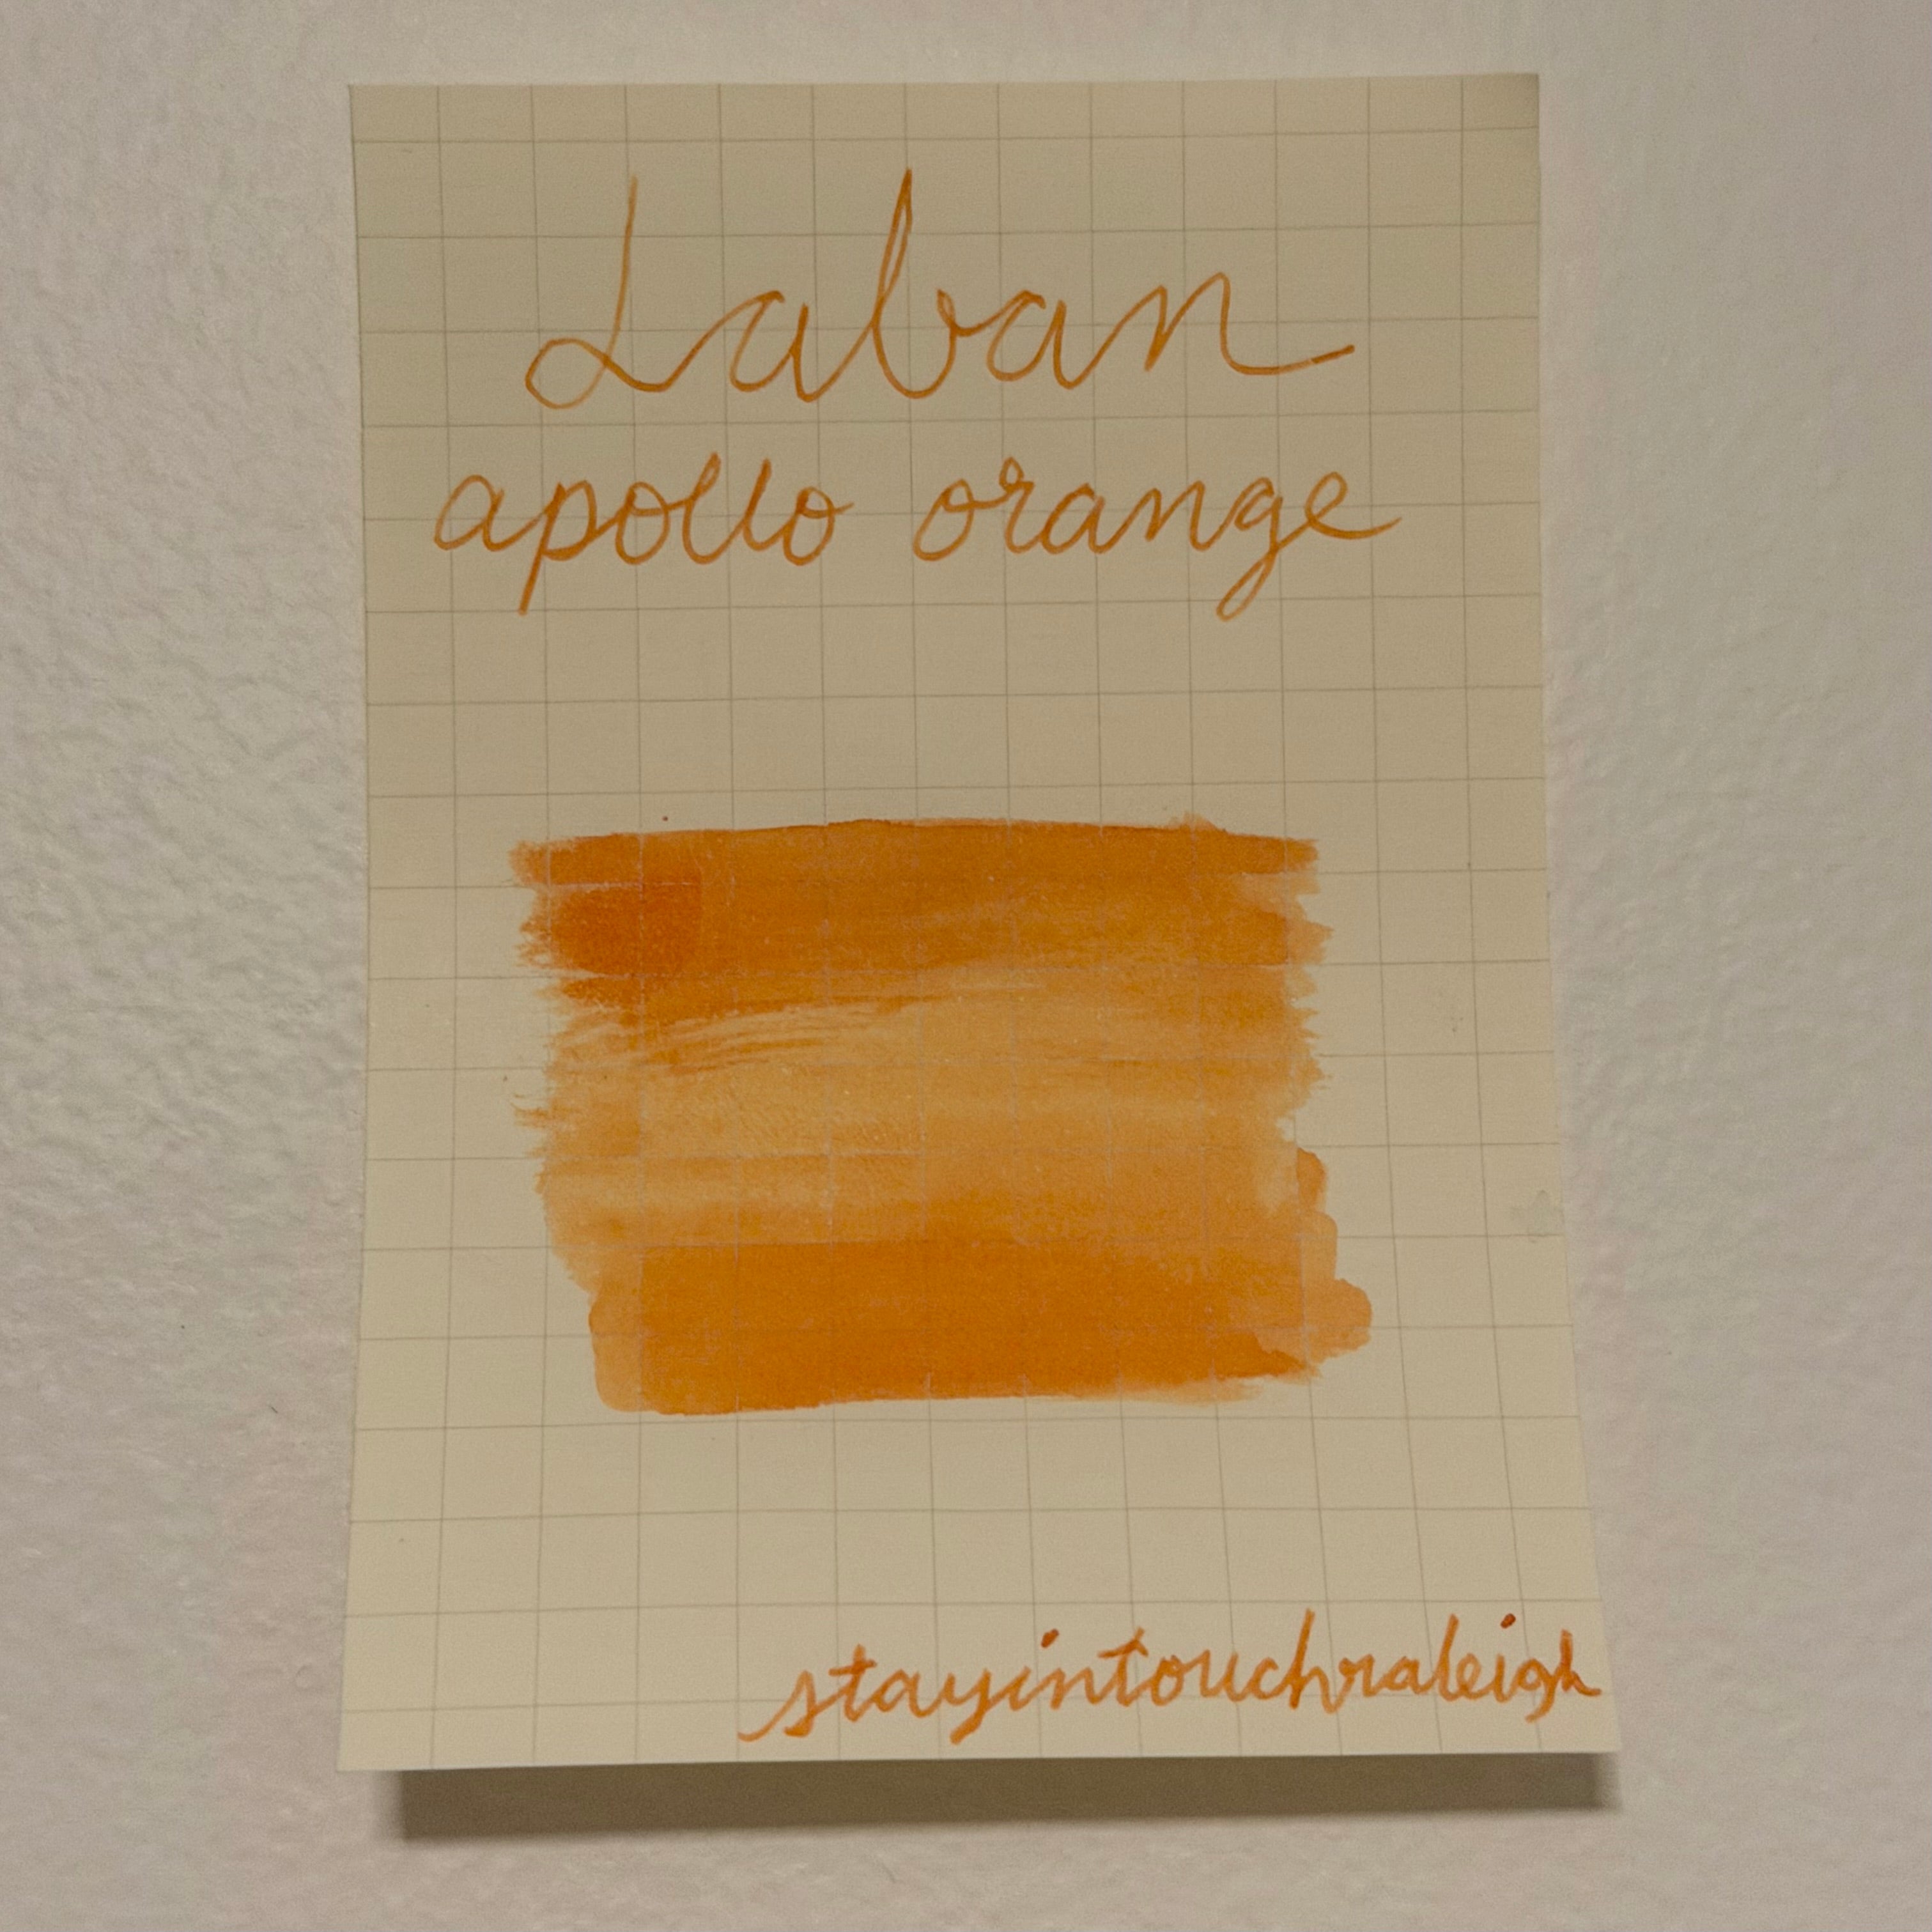 Laban
apollo orange
stayintouchraleigh